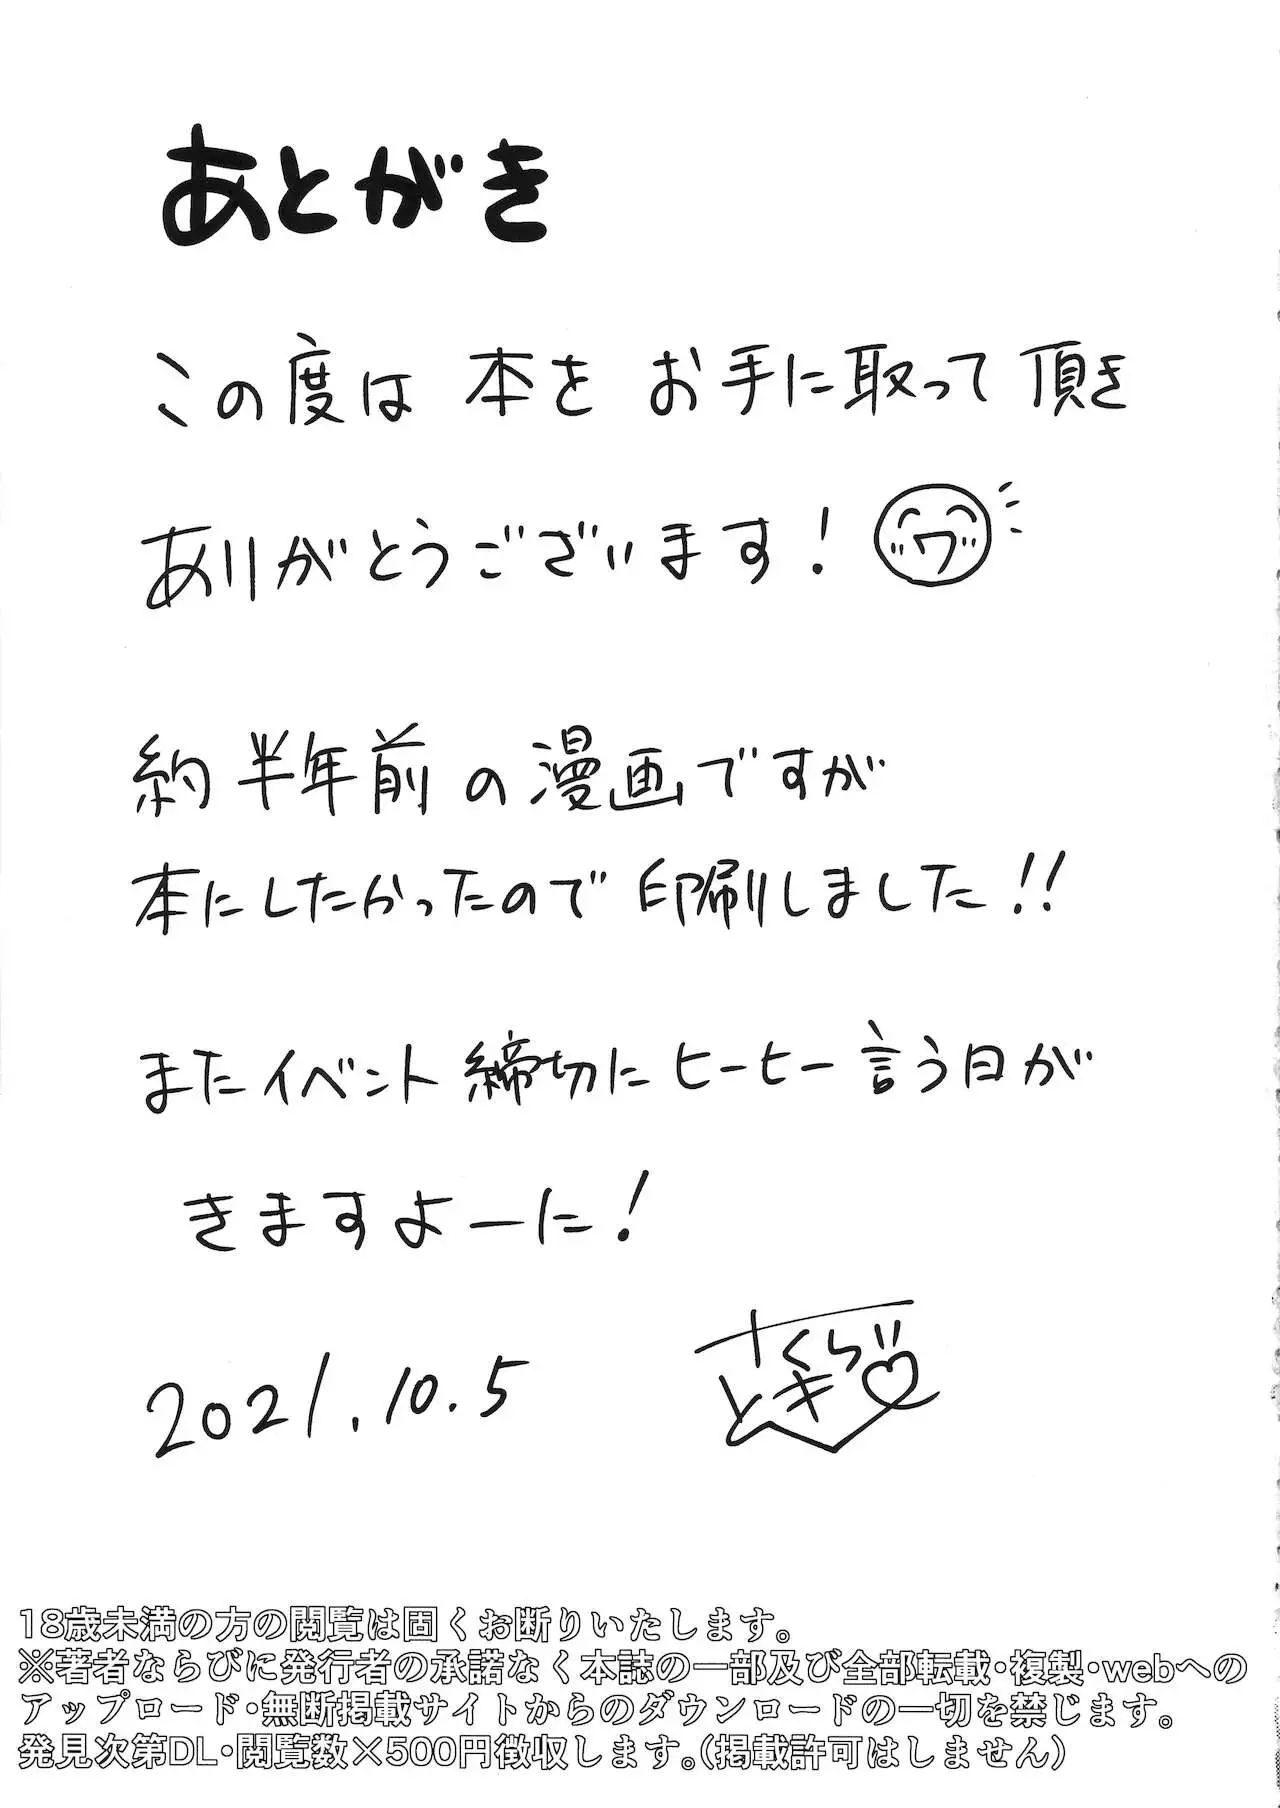 あとがき
この度は 本を お手に取って 頂き
ありがとうございます!
約 半年前 の 漫画ですが
本にしたかったので 印刷しました!!
またイベント 締切に ヒーヒー 言う日が
きますよーに!
2021.10.5
さくら
とき
18歳未満の方の閲覧は固くお断りいたします。
※著者ならびに発行者の承諾なく本誌の一部及び全部転載・複製・webへの
アップロード・無断掲載サイトからのダウンロードの一切を禁じます。
発見次第DL・閲覧数×500円徴収します。(掲載許可はしません)